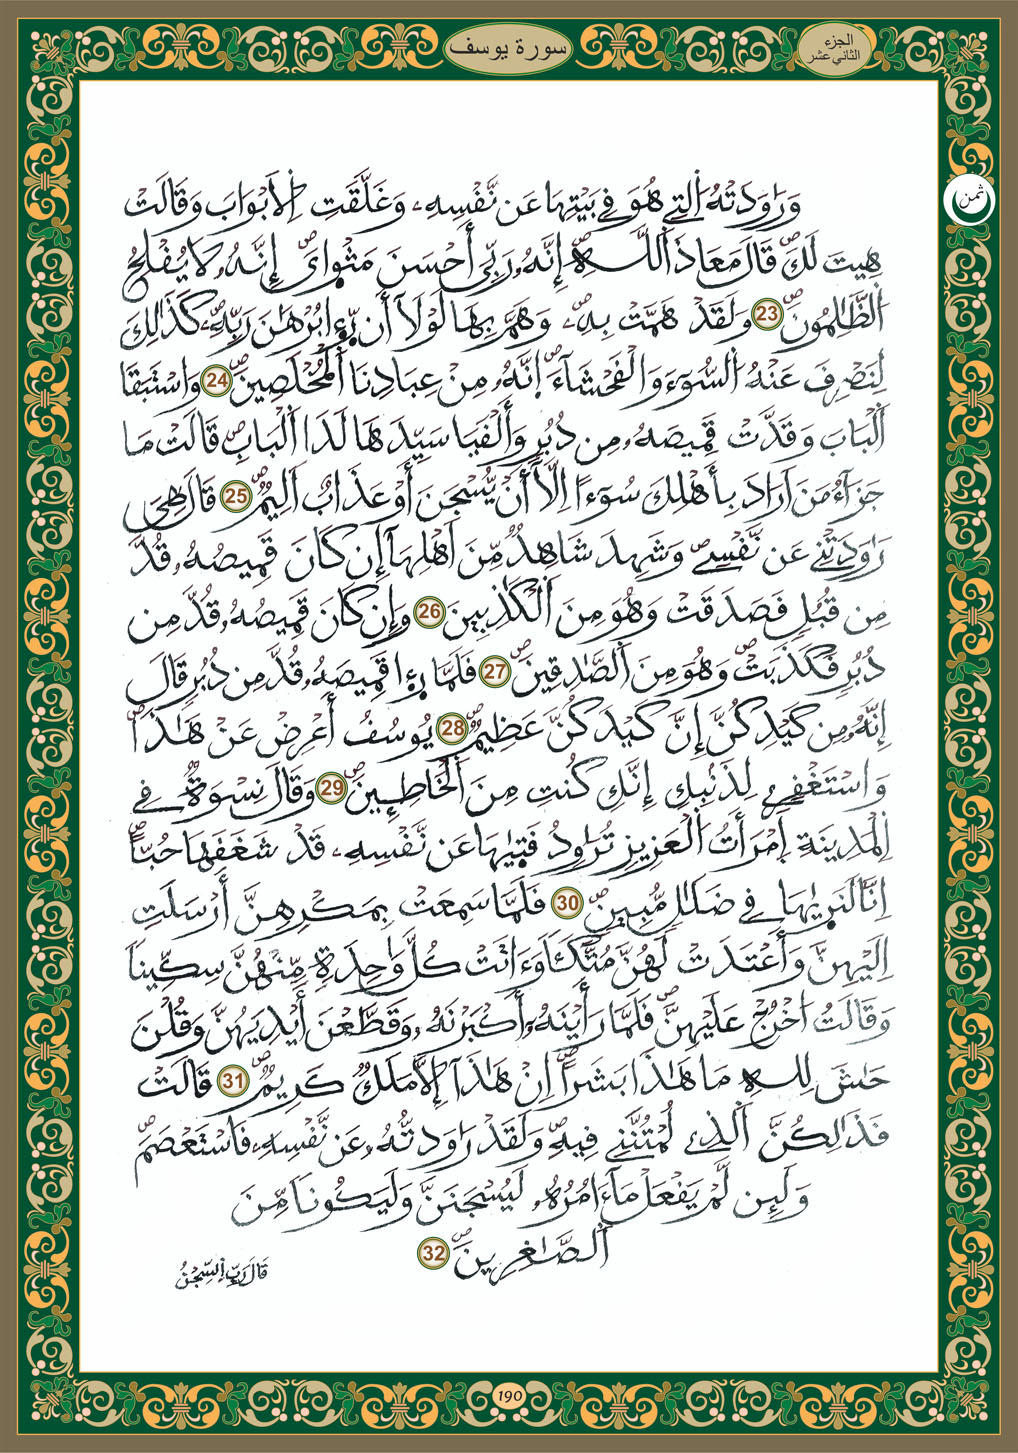 الجزء
الثاني عشر
سورة يوسف
ثمن
وَرَٰوَدَتْهُ اُلتِے هُوَ فِے بَيْتِهَا عَن نَّفْسِهِۦ وَغَلَّقَتِ اِلَابْوَٰبَ وَقَالَتْ
هِيتَ لَكَۖ قَالَ مَعَاذَ اَللَّهِۖ إِنَّهُۥ رَبِّيَ أَحْسَنَ مَثْوَايَۖ إِنَّهُۥ لَا يُفْلِحُ
اُلظَّٰلِمُونَۖ 23 وَلَقَدْ هَمَّتْ بِهِۦۖ وَهَمَّ بِهَا لَوْلَآ أَن رَّءٖا بُرْهَٰنَ رَبِّهِۦۖ كَذَٰلِكَ
لِنَصْرِفَ عَنْهُ اُلسُّوٓءَ وَالْفَحْشَآءَۖ اِنَّهُۥ مِنْ عِبَادِنَا اَلْمُخْلَصِينَۖ 24 وَاسْتَبَقَا
اَلْبَابَ وَقَدَّتْ قَمِيصَهُۥ مِن دُبُرٖ وَأَلْفَيَا سَيِّدَهَا لَدَا اَلْبَابِۖ قَالَتْ مَا
جَزَآءُ مَنَ اَرَادَ بِأَهْلِكَ سُوٓءاً اِلَّآ أَنْ يُّسْجَنَ أَوْ عَذَابٌ اَلِيمٌۖ 25 قَالَ هِيَ
رَٰوَدَتْنِے عَن نَّفْسِےۖ وَشَهِدَ شَاهِدٌ مِّنَ اَهْلِهَآ إِن كَانَ قَمِيصُهُۥ قُدَّ
مِن قُبُلٖ فَصَدَقَتْ وَهُوَ مِنَ اَلْكَٰذِبِينَۖ 26 وَإِن كَانَ قَمِيصُهُۥ قُدَّ مِن
دُبُرٖ فَكَذَبَتْۖ وَهُوَ مِنَ اَلصَّٰدِقِينَۖ 27 فَلَمَّا رَءٖا قَمِيصَهُۥ قُدَّ مِن دُبُرٖ قَالَ
إِنَّهُۥ مِن كَيْدِكُنَّ إِنَّ كَيْدَكُنَّ عَظِيمٌۖ 28 يُوسُفُ أَعْرِضْ عَنْ هَٰذَاۖ
وَاسْتَغْفِرِے لِذَنۢبِكِ إِنَّكِ كُنتِ مِنَ اَلْخَاطِـِٕينَۖ 29 وَقَالَ نِسْوَةٌ فِے
اِلْمَدِينَةِ اِمْرَأَتُ اُلْعَزِيزِ تُرَٰوِدُ فَتَيٰهَا عَن نَّفْسِهِۦ قَدْ شَغَفَهَا حُبّاًۖ
اِنَّا لَنَرٖيٰهَا فِے ضَلَٰلٖ مُّبِينٖۖ 30 فَلَمَّا سَمِعَتْ بِمَكْرِهِنَّ أَرْسَلَتِ
اِلَيْهِنَّ وَأَعْتَدَتْ لَهُنَّ مُتَّكَـٔاً وَءَاتَتْ كُلَّ وَٰحِدَةٖ مِّنْهُنَّ سِكِّيناً
وَقَالَتُ اُخْرُجْ عَلَيْهِنَّۖ فَلَمَّا رَأَيْنَهُۥٓ أَكْبَرْنَهُۥ وَقَطَّعْنَ أَيْدِيَهُنَّ وَقُلْنَ
حَٰشَ لِلهِ مَا هَٰذَا بَشَراًۖ اِنْ هَٰذَآ إِلَّا مَلَكٌ كَرِيمٌۖ 31 قَالَتْ
فَذَٰلِكُنَّ اَلذِے لُمْتُنَّنِے فِيهِۖ وَلَقَدْ رَٰوَدتُّهُۥ عَن نَّفْسِهِۦ فَاسْتَعْصَمَۖ
وَلَئِن لَّمْ يَفْعَلْ مَآ ءَامُرُهُۥ لَيُسْجَنَنَّ وَلَيَكُوناً مِّنَ
اَلصَّٰغِرِينَۖ 32
قَالَ رَبِّ اِلسِّجْنُ
190